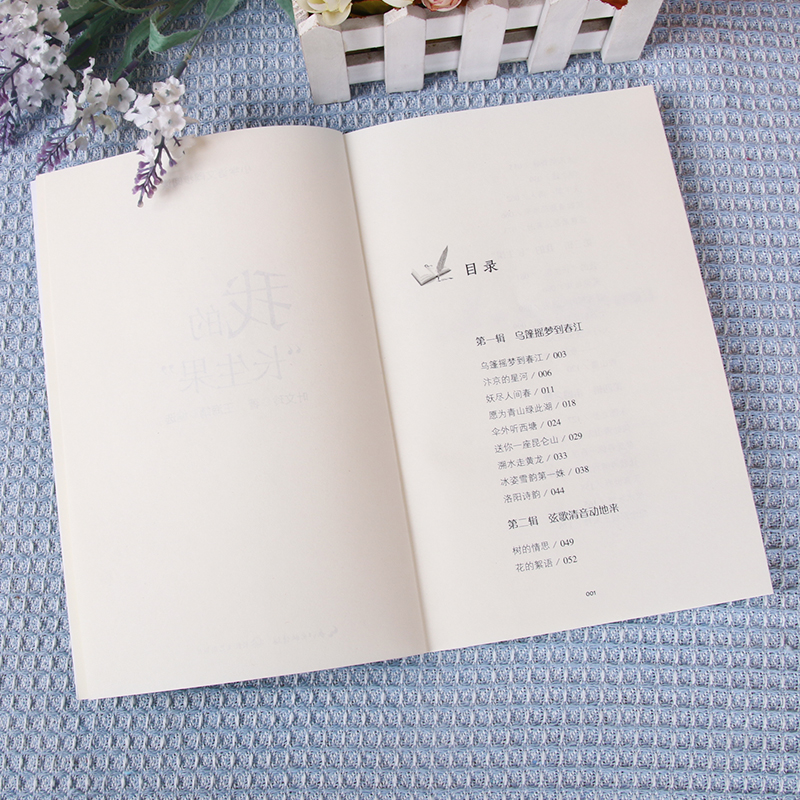 我的
“长生果”
目录
第一辑 乌篷摇梦到春江
乌篷摇梦到春江 / 003
汴京的星河 / 006
妖尽人间春 / 011
愿为青山绿此湖 / 018
伞外听西塘 / 024
送你一座昆仑山 / 029
溯水走黄龙 / 033
冰姿雪韵第一姝 / 038
洛阳诗韵 / 044
第二辑 弦歌清音动地来
树的情思 / 049
花的絮语 / 052
001